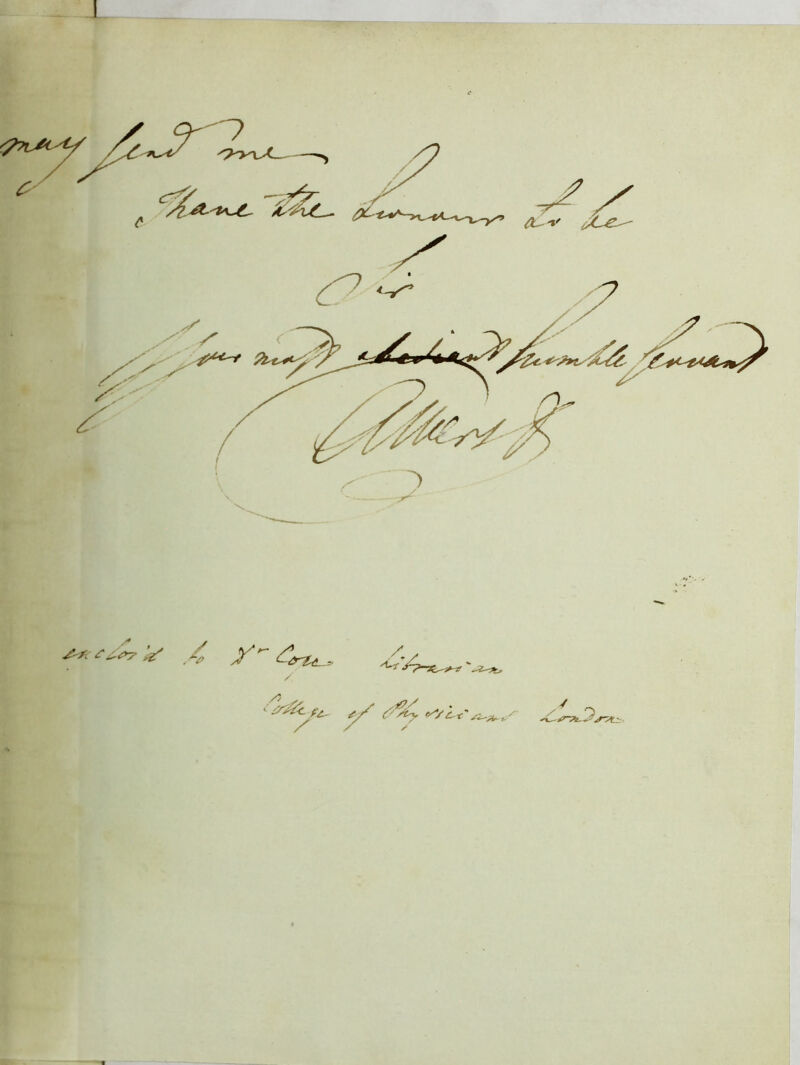 may send me
I have the honour to be
Sir
Your most obedient humble servant
Albers
enclos'd to Dr Cope Librarian
College of Physicians London